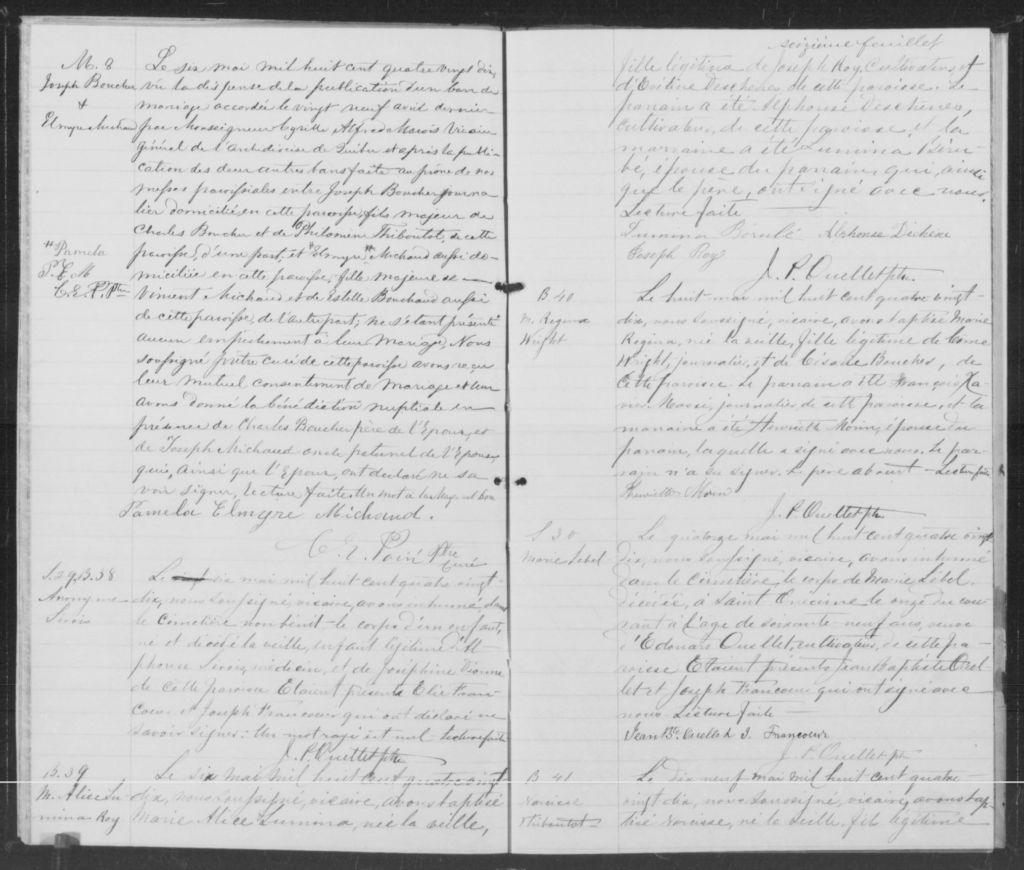 M. 8
Joseph Boucher
&
Elmyre Michaud
"Pamela
P. E. M
C. E. P. Ptre
Le six mai mil huit cent quatre vingt dix,
vu la dispense de la publication d'un ban de
mariage accordée le vingt neuf avril dernier
par Monseigneur Cyrille Alfred Marois Vicaire
général de l'archidiocèse de Québec et après la publi-
cation des deux autres bans faite au prône de nos
messes paroissiales entre Joseph Boucher journa-
lier domicilié en cette paroisse, fils majeur de
Charles Boucher et de Philomène Thiboutot, de cette
paroisse, d'une part, et Elmyre " Michaud aussi do-
miciliée en cette paroisse, fille majeure de
Vincent Michaud et de Estelle Bouchard aussi
de cette paroisse, de l'autre part; ne s'étant présenté
aucun empêchement à leur mariage, Nous
soussigné prêtre curé de cette paroisse avons reçu
leur mutuel consentement de mariage et leur
avons donné la bénédiction nuptiale en
présence de Charles Boucher père de l'Epoux, et
de Joseph Michaud oncle paternel de l'Epouse,
qui, ainsi que l'Epoux, ont déclaré ne sa
voir signer, lecture faite. Un mot à la marge est bon
Pamela Elmyre Michaud.
C. E. Poiri Ptre
Curé
S. 29, B. 38
Anonyme
Sirois
Le six mai mil huit cent quatre vingt-
dix, nous soussigné, vicaire, avons inhumé, dans
le cimetière non bénit - le corps d'un enfant,
né et décédé la veille, enfant légitime d'Al
phonse Sirois, médecin, et de Joséphine Dionne
de cette paroisse Etaient présents Elie Fran-
coeur et Joseph Francoeur qui ont déclaré ne
savoir signer. Un mot rayé est nul - lecture faite
J. P. Ouellet ptre
B. 39
M. Alice Lu-
mina Roy
Le six mai mil huit cent quatre vingt
dix, nous soussigné, vicaire, avons baptisé
Marie Alice Lumina, née la veille,
seizième feuillet
fille légitime de Joseph Roy, cultivateur, et
de cette paroisse. Le
parrain a été Alphonse Deschênes,
cultivateur, de cette paroisse, et la
marraine a été Lumina Béru-
bé, épouse du parrain, qui, ainsi
que le père, ont signé avec nous.
Lecture faite
Lumina Bérubé Alphonse Dechêne
Joseph Roy
J. P. Ouellet ptre.
B 40
M. Regina
Wright
Le huit mai mil huit cent quatre vingt-
dix, nous soussigné, vicaire, avons baptisé Marie
Regina, née la veille, fille légitime de Come
Wright, journalier, et de Césarie Boucher, de
cette paroisse Le parrain a été François Xa-
vier journalier, de cette paroisse, et la
marraine a été Henriette Morin, épouse du
parrain, laquelle a signé avec nous. Le par-
rain n'a su signer. Le père absent - Lecture faite
Henriette Morin
J. P. Ouellet ptre
S 30
Marie Lebel
Le quatorze mai mil huit cent quatre vingt
dix, nous soussigné, vicaire, avons inhumé
dans le cimetière, le corps de Marie Lebel
décédée, à Saint Onésime le onze du cou-
rant à l'âge de soixante-neuf ans, veuve
d'Edouard Ouellet, cultivateur, de cette pa-
roisse Etaient présents Jean Baptiste Ouel
let et Joseph Francoeur qui ont signé avec
nous Lecture faite
Jean Bte Ouellet J. Francoeur
J. P. Ouellet ptr
B 41
Narcisse
Thiboutot
Le dix neuf mai mil huit cent quatre
vingt dix, nous soussigné, vicaire, avons bap
tisé Narcisse, né la veille, fils légitime